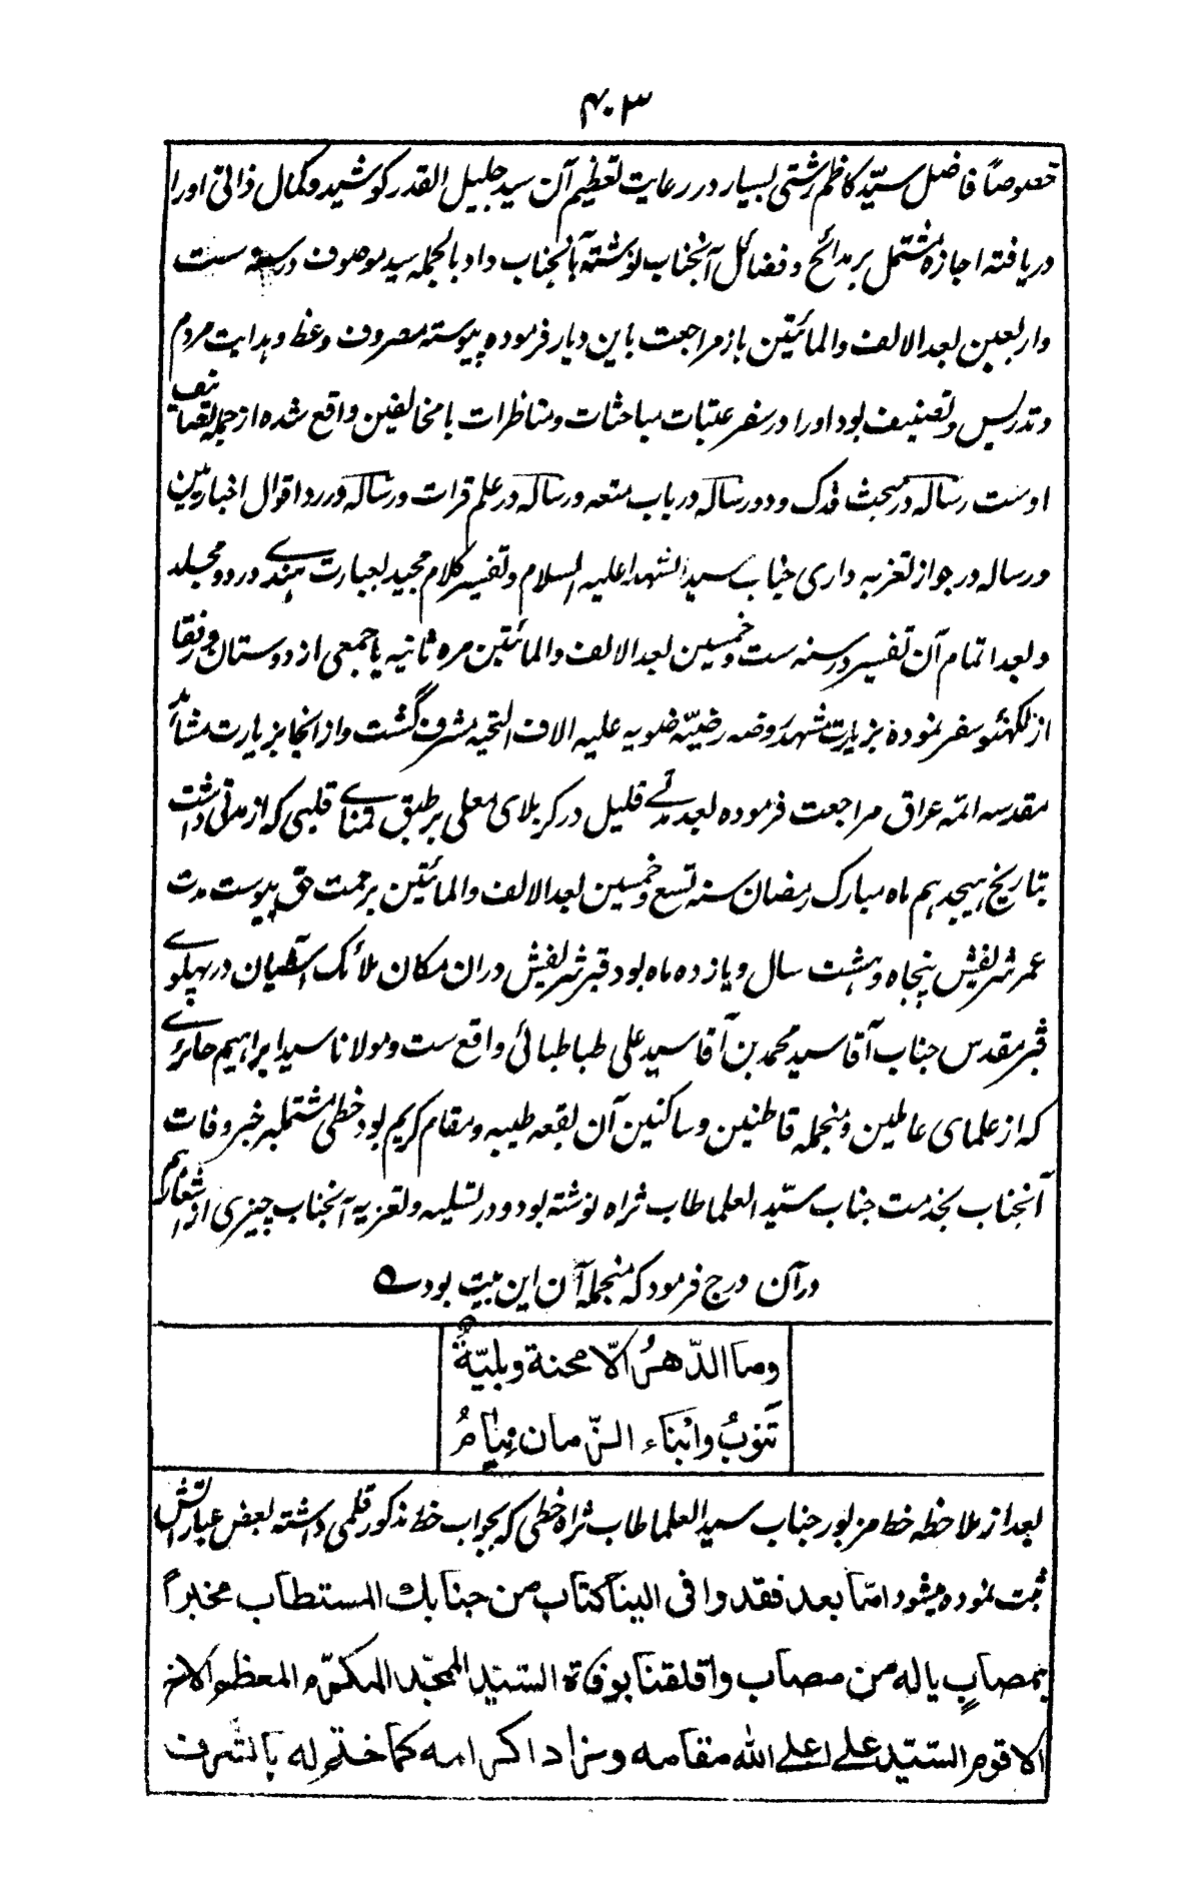 ۴۰۳
خصوصاً فاضل سیّد کاظم رشتی بسیار در رعایت تعظیم آن سید جلیل القدر کوشید و کمال ذاتی او را
دریافته اجازه مشتمل بر مدائح و فضائل آنجناب نوشته بآنجناب داد بالجمله سید موصوف در سنه ست
واربعین بعد الالف والمائتین باز مراجعت باین دیار فرموده پیوسته مصروف وعظ و هدایت مردم
و تدریس و تصنیف بود او را در سفر عتبات مباحثات و مناظرات با مخالفین واقع شده از جمله تصانیف
اوست رساله در مبحث فدک و دو رساله در باب متعه و رساله در علم قرات و رساله در رد اقوال اخباریین
و رساله در جواز تعزیه داری جناب سید الشهدا علیه السلام و تفسیر کلام مجید بعبارت هندے در دو مجلد
و بعد اتمام آن تفسیر در سنه ست و خمسین بعد الالف والمائتین مره ثانیه با جمعی از دوستان و رفقا
از لکهنؤ سفر نموده بزیارت مشهد روضه رضیّه رضویه علیه الاف التحیه مشرف گشت و از انجا بزیارت مشاهد
مقدسه ائمه عراق مراجعت فرموده بعد مدتے قلیل در کربلای معلی بر طبق تمناے قلبی که از مدتی داشت
بتاریخ هیجدهم ماه مبارک رمضان سنه تسع و خمسین بعد الالف والمائتین برحمت حق پیوست مدت
عمر شریفش پنجاه و هشت سال و یازده ماه بود قبر شریفش دران مکان ملائک آشیان در پهلوے
قبر مقدس جناب آقا سید محمد بن آقا سید علی طباطبائی واقع ست و مولانا سید ابراهیم حائرے
که از علمای عاملین و منجمله قاطنین و ساکنین آن بقعه طیبه و مقام کریم بود خطی مشتمله بر خبر وفات
آنجناب بخدمت جناب سیّد العلما طاب ثراه نوشته بود و در تسلیه و تعزیه آنجناب چیزی از اشعار هم
در آن درج فرمود که منجمله آن این بیت بود ؎
وما الدّهرُ الّا محنة وبلیّةٌ
تَنوبُ وابْنَاء الزّمان نِیامُ
بعد از ملاحظه خط مزبور جناب سید العلما طاب ثراه خطی که بجواب خط مذکور قلمی داشته بعض عباراتش
ثبت نموده میشود امّا بعد فقد وافی الینا کتاب من جنابك المستطاب مخبراً
بمصابٍ یاله من مصاب واقلقنا بوفاة السیّد الممجّد المکرّم المعظم
الاقوم السیّد علی اعلی الله مقامه وزاد اکرامه کما ختم له بالشرف